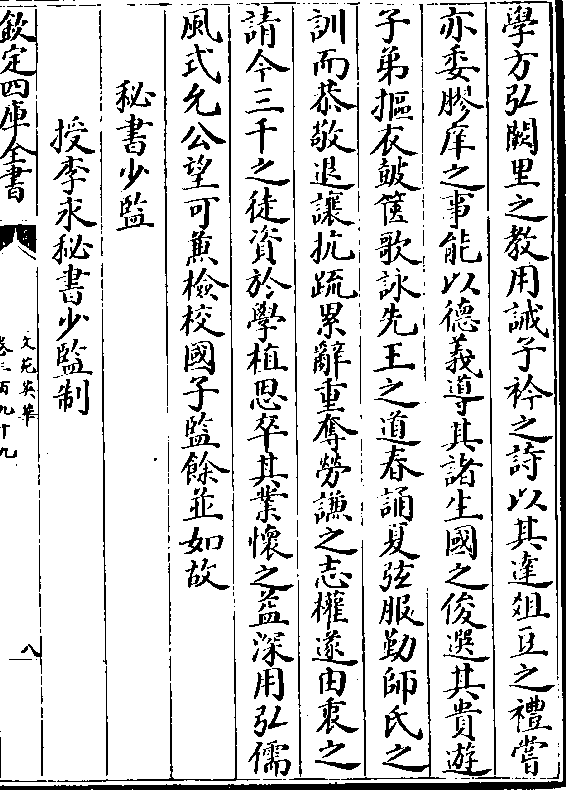 學方弘闕里之教用誡子衿之詩以其達俎豆之禮嘗
亦委膠庠之事能以德義導其諸生國之俊選其貴遊
子弟摳衣鼓篋歌詠先王之道春誦夏弦服勤師氏之
訓而恭敬退讓抗䟽累辭重奪勞謙之志權遂由衷之
請今三千之徒資於學植思卒其業懷之益深用弘儒
風式允公望可兼檢校國子監餘並如故
秘書少監
授李永秘書少監制
欽定四庫全書
文苑英華
卷三百九十九
八